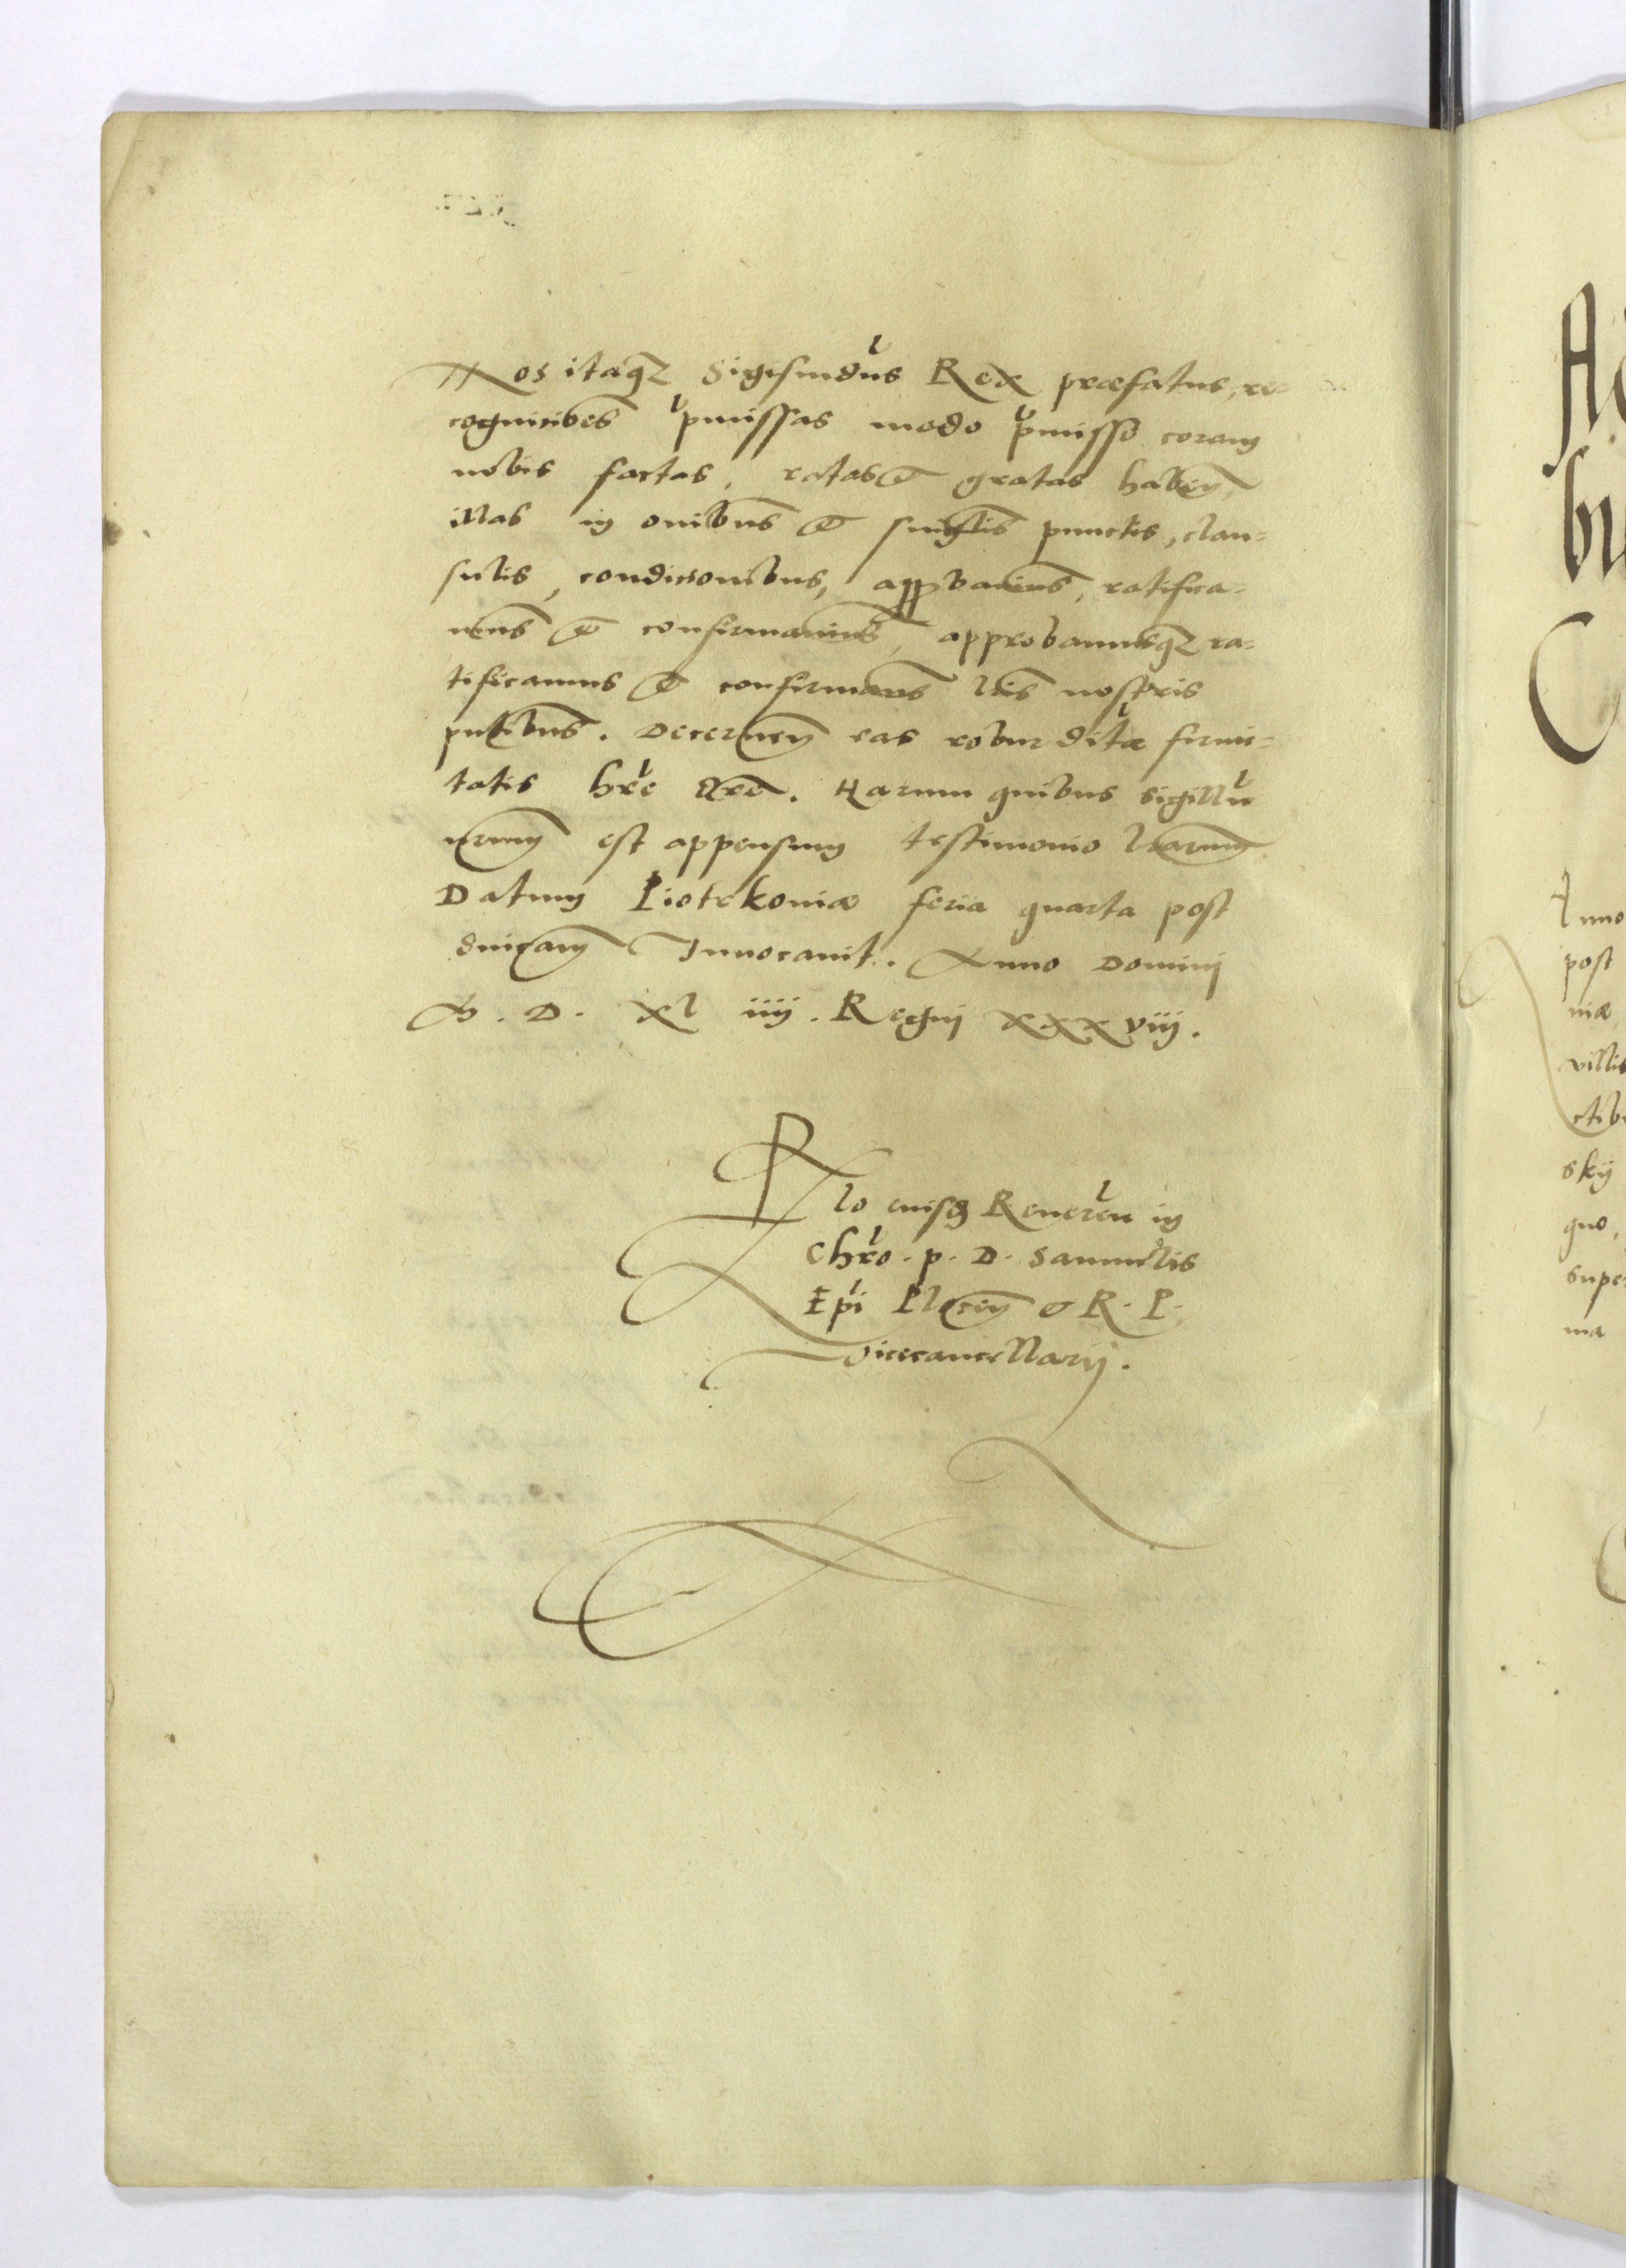 Nos itaq₃ Sigismūdus Rex præfatus, re-
cognicōes p̄missas modo p̄misso coram
nobis factas, ratas et gratas haben̄
illas in oībus et singl̄is punctis, clau=
sulis, condicionibus, app̱bauimus, ratifica=
uimus et confirmauimus, approbamusq₃ ra=
tificamus et confirmam̄s l̄ris nostris
p̄ntibus. Decernen̄ eas robur d̄itæ firmi=
tatis h̄re. Harum quibus sigillū
n̄rum est appensum testimonio l̄rarum
Datum Piotrkoniæ feria quarta post
dn̄icam Inuocauit. Anno Domini
M. D. xl iiij. Regnj xxxviij.
R̄lo eiusd̄ Reuerēn in
Chr̄o. p. D. Samuelis
Ep̄i Plocen̄ & R. P.
vicecancellarij.
Anno
post
niæ
villis
ctib
skij
quo,
supe
ma